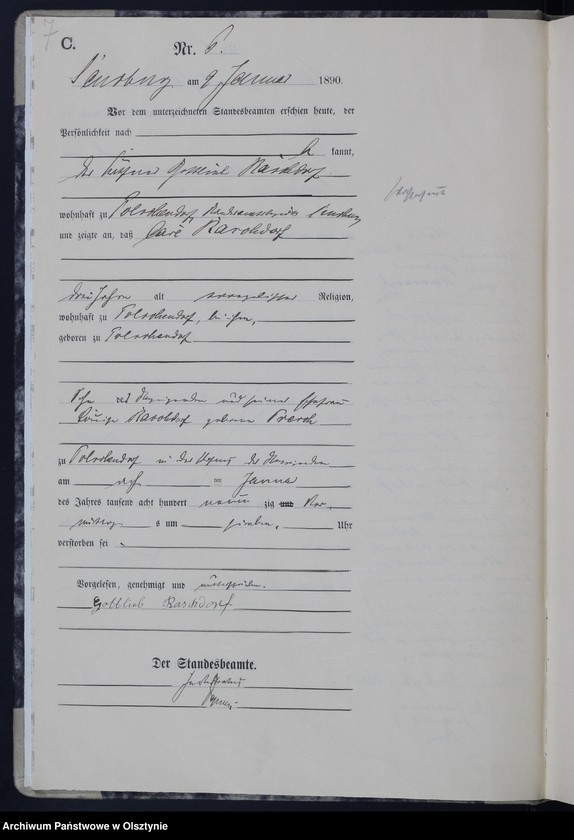 7
C.
Nr. 6.
Sensburg am 9 Januar 1890.
Vor dem unterzeichneten Standesbeamten erschien heute, der
Persönlichkeit nach
kannt,
der Gottlieb Raschdorf
wohnhaft zu Polschendorf Sensburg
und zeigte an, daß Carl Raschdorf
drei Jahre alt evangelischer Religion,
wohnhaft zu Polschendorf, bei ihm,
geboren zu Polschendorf
Sohn des Anzeigenden und seiner Ehefrau
Louise Raschdorf geborene
zu Polschendorf in der Wohnung des Anzeigenden
am acht ten Januar
des Jahres tausend acht hundert neun zig und Vor-
mittags s um sieben Uhr
verstorben sei
Vorgelesen, genehmigt und unterschrieben.
Gottlieb Raschdorf
Der Standesbeamte.
In Vertretung
Archiwum Państwowe w Olsztynie